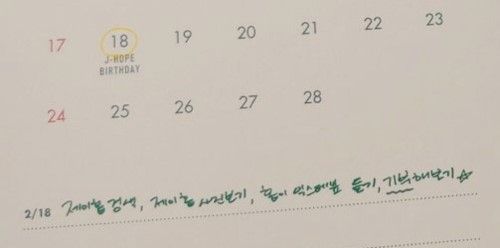 17 18 19 20 21 22 23
J-HOPE
BIRTHDAY
24 25 26 27 28
2/18 제이홉 검색, 제이홉 사진보기, 홉이 믹스테잎 듣기, 기부해보기☆